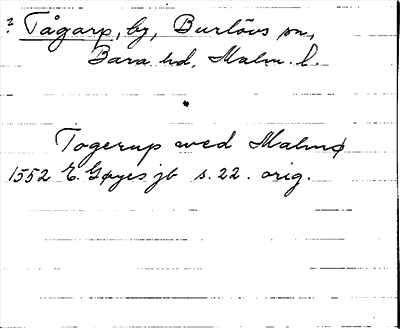 ? Tågarp, by, Burlövs sn,
Bara hd, Malm. l.
Togerup wed Malmø
1552 E. Gøyes jb s. 22. orig.